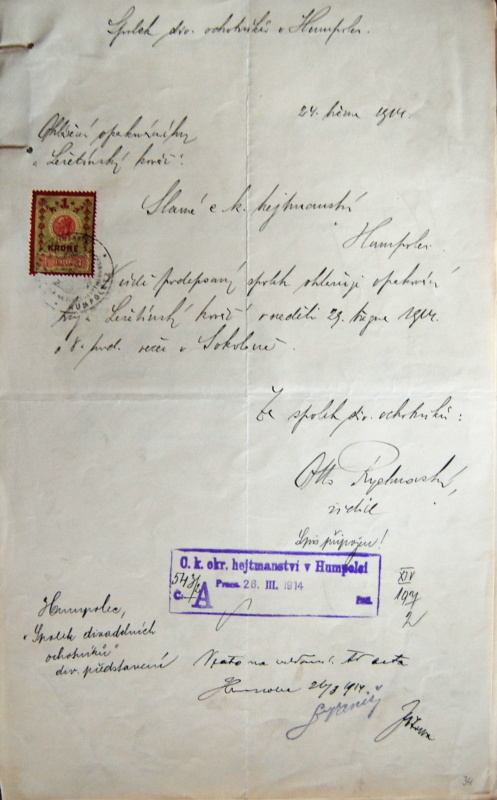 Spolek div. ochotníků v Humpolci.
24. března 1914.
Ohlášení opakování hry
„Lešetínský kovář".
1
KRONE
HUMPOLEC
Slavné c. k. hejtmanství
Humpolec
Níže podepsaný spolek ohlašuje opakování
hry „Lešetínský kovář" v neděli 29. března 1914.
o 8. hod. večer v Sokolovně.
Za spolek div. ochotníků:
Otto Rychnovský,
ředitel
Spis připojen!
C. k. okr. hejtmanství v Humpolci
Praes. 26. III. 1914
č. A
Příl.
XIV
2
Humpolec,
„Spolek divadelních
ochotníků"
div. představení
Vzato na vědomí. Ad acta
Humpolec 26/3 1914
34